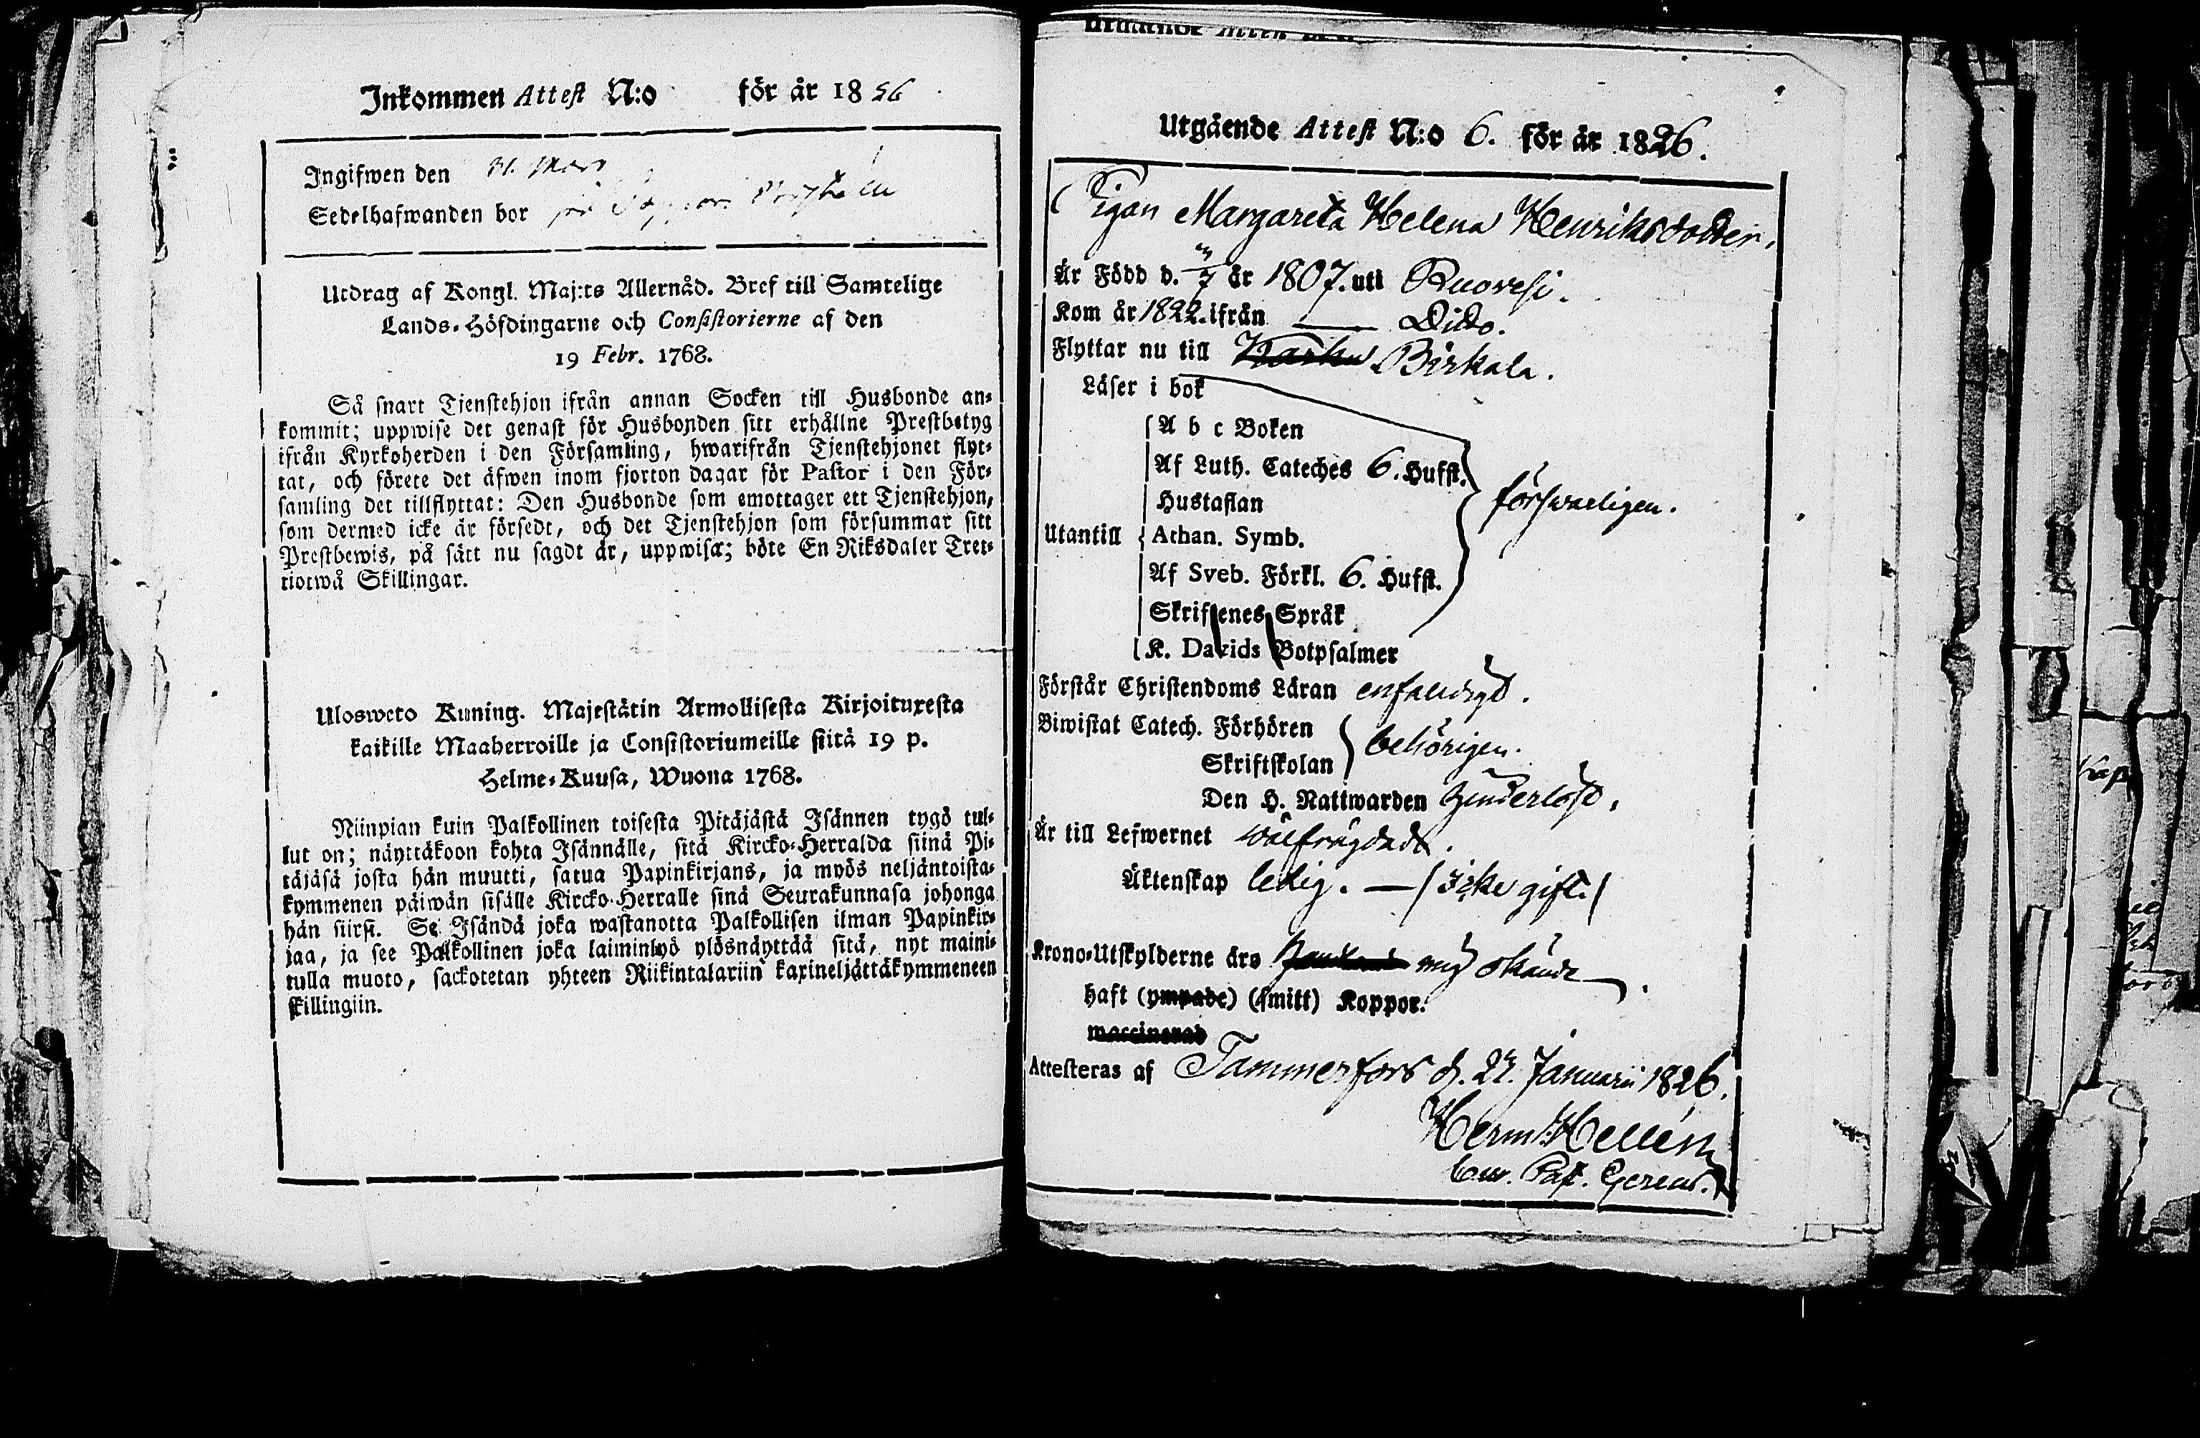 Inkommen Attest N:o för år 1826
Ingifwen den Mars
Sedelhafwanden bor på
Utdrag af Kongl. Maj:ts Allernåd. Bref till Samtelige
Lands-Höfdingarne och Consistorierne af den
19 Febr. 1768.
Så snart Tjenstehjon ifrån annan Socken till Husbonde an-
kommit; uppwise det genast för Husbonden sitt erhållne Prestbetyg
ifrån Kyrkoherden i den Församling, hwarifrån Tjenstehjonet flyt-
tat, och förete det äfwen inom fjorton dagar för Pastor i den För-
samling det tillflyttat: Den Husbonde som emottager ett Tjenstehjon,
som dermed icke är försedt, och det Tjenstehjon som försummar sitt
Prestbewis, på sätt nu sagdt är, uppwisa; böte En Riksdaler Tret-
tiotwå Skillingar.
Ulosweto Kuning. Majestätin Armollisesta Kirjoituxesta
kaikille Maaherroille ja Consistoriumeille siitä 19 p.
Helme-Kuusa, Wuona 1768.
Niinpian kuin Palkollinen toisesta Pitäjästä Isännen tygö tul-
lut on; näyttäkoon kohta Isännälle, sitä Kircko-Herralda siinä Pi-
täjäsä josta hän muutti, satua Papinkirjans, ja myös neljäntoista-
kymmenen päiwän sisälle Kircko-Herralle sinä Seurakunnasa johonga
hän siirsi. Se Isändä joka wastanotta Palkollisen ilman Papinkir-
jaa, ja see Palkollinen joka laiminlyö ylösnäyttää sitä, nyt maini-
tulla muoto, sackotetan yhteen Riikintalariin kaxineljättäkymmeneen
skillingiin.
Utgående Attest N:o 6. för år 1826.
Pigan Margareta Helena Henriksdotter.
Är Född d. 7 år 1807. uti Ruovesi.
Kom år 1822. ifrån — Dito.
Flyttar nu till Karku Birkala.
Läser i bok
A b c Boken
Af Luth. Cateches 6. Hufst.
Hustaflan försvarligen.
Utantill Athan. Symb.
Af Sveb. Förkl. 6. Hufst.
Skriftenes Språk
K. Davids Botpsalmer
Förstår Christendoms Läran enfaldigt.
Biwistat Catech. Förhören behörigen.
Skriftskolan
Den H. Nattwarden hinderlöst.
Är till Lefwernet wälfrägdad.
Äktenskap ledig. — (icke gift.)
Krono-Utskylderne äro
haft (ympade) (smitt) Koppor.
waccinerad
Attesteras af Tammerfors d. 27. Januarii 1826.
Herm: Hellén
Past. Gerens.